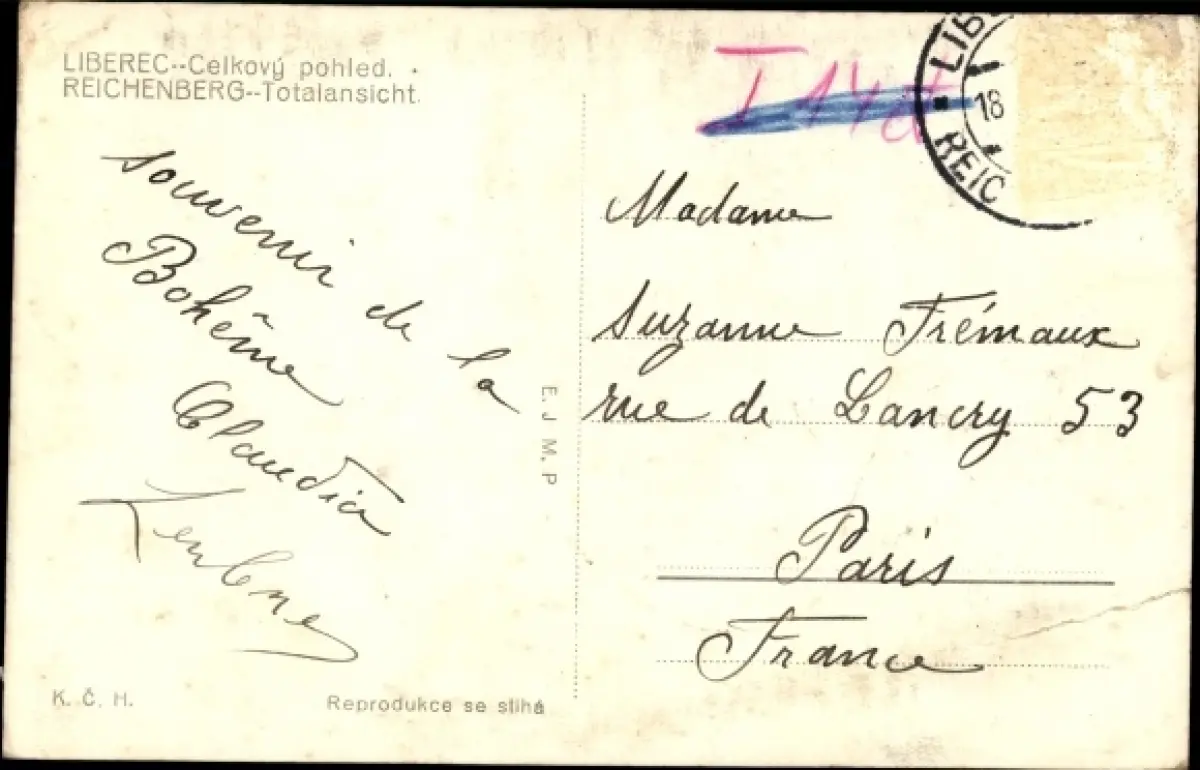 LIBEREC--Celkový pohled.
REICHENBERG--Totalansicht.
souvenir de la
Bohême
Claudia
E. J. M. P
K. Č. H.
Reprodukce se stíhá
18
REIC
Madame
Suzanne Frémaux
rue de Lancry 53
Paris
France